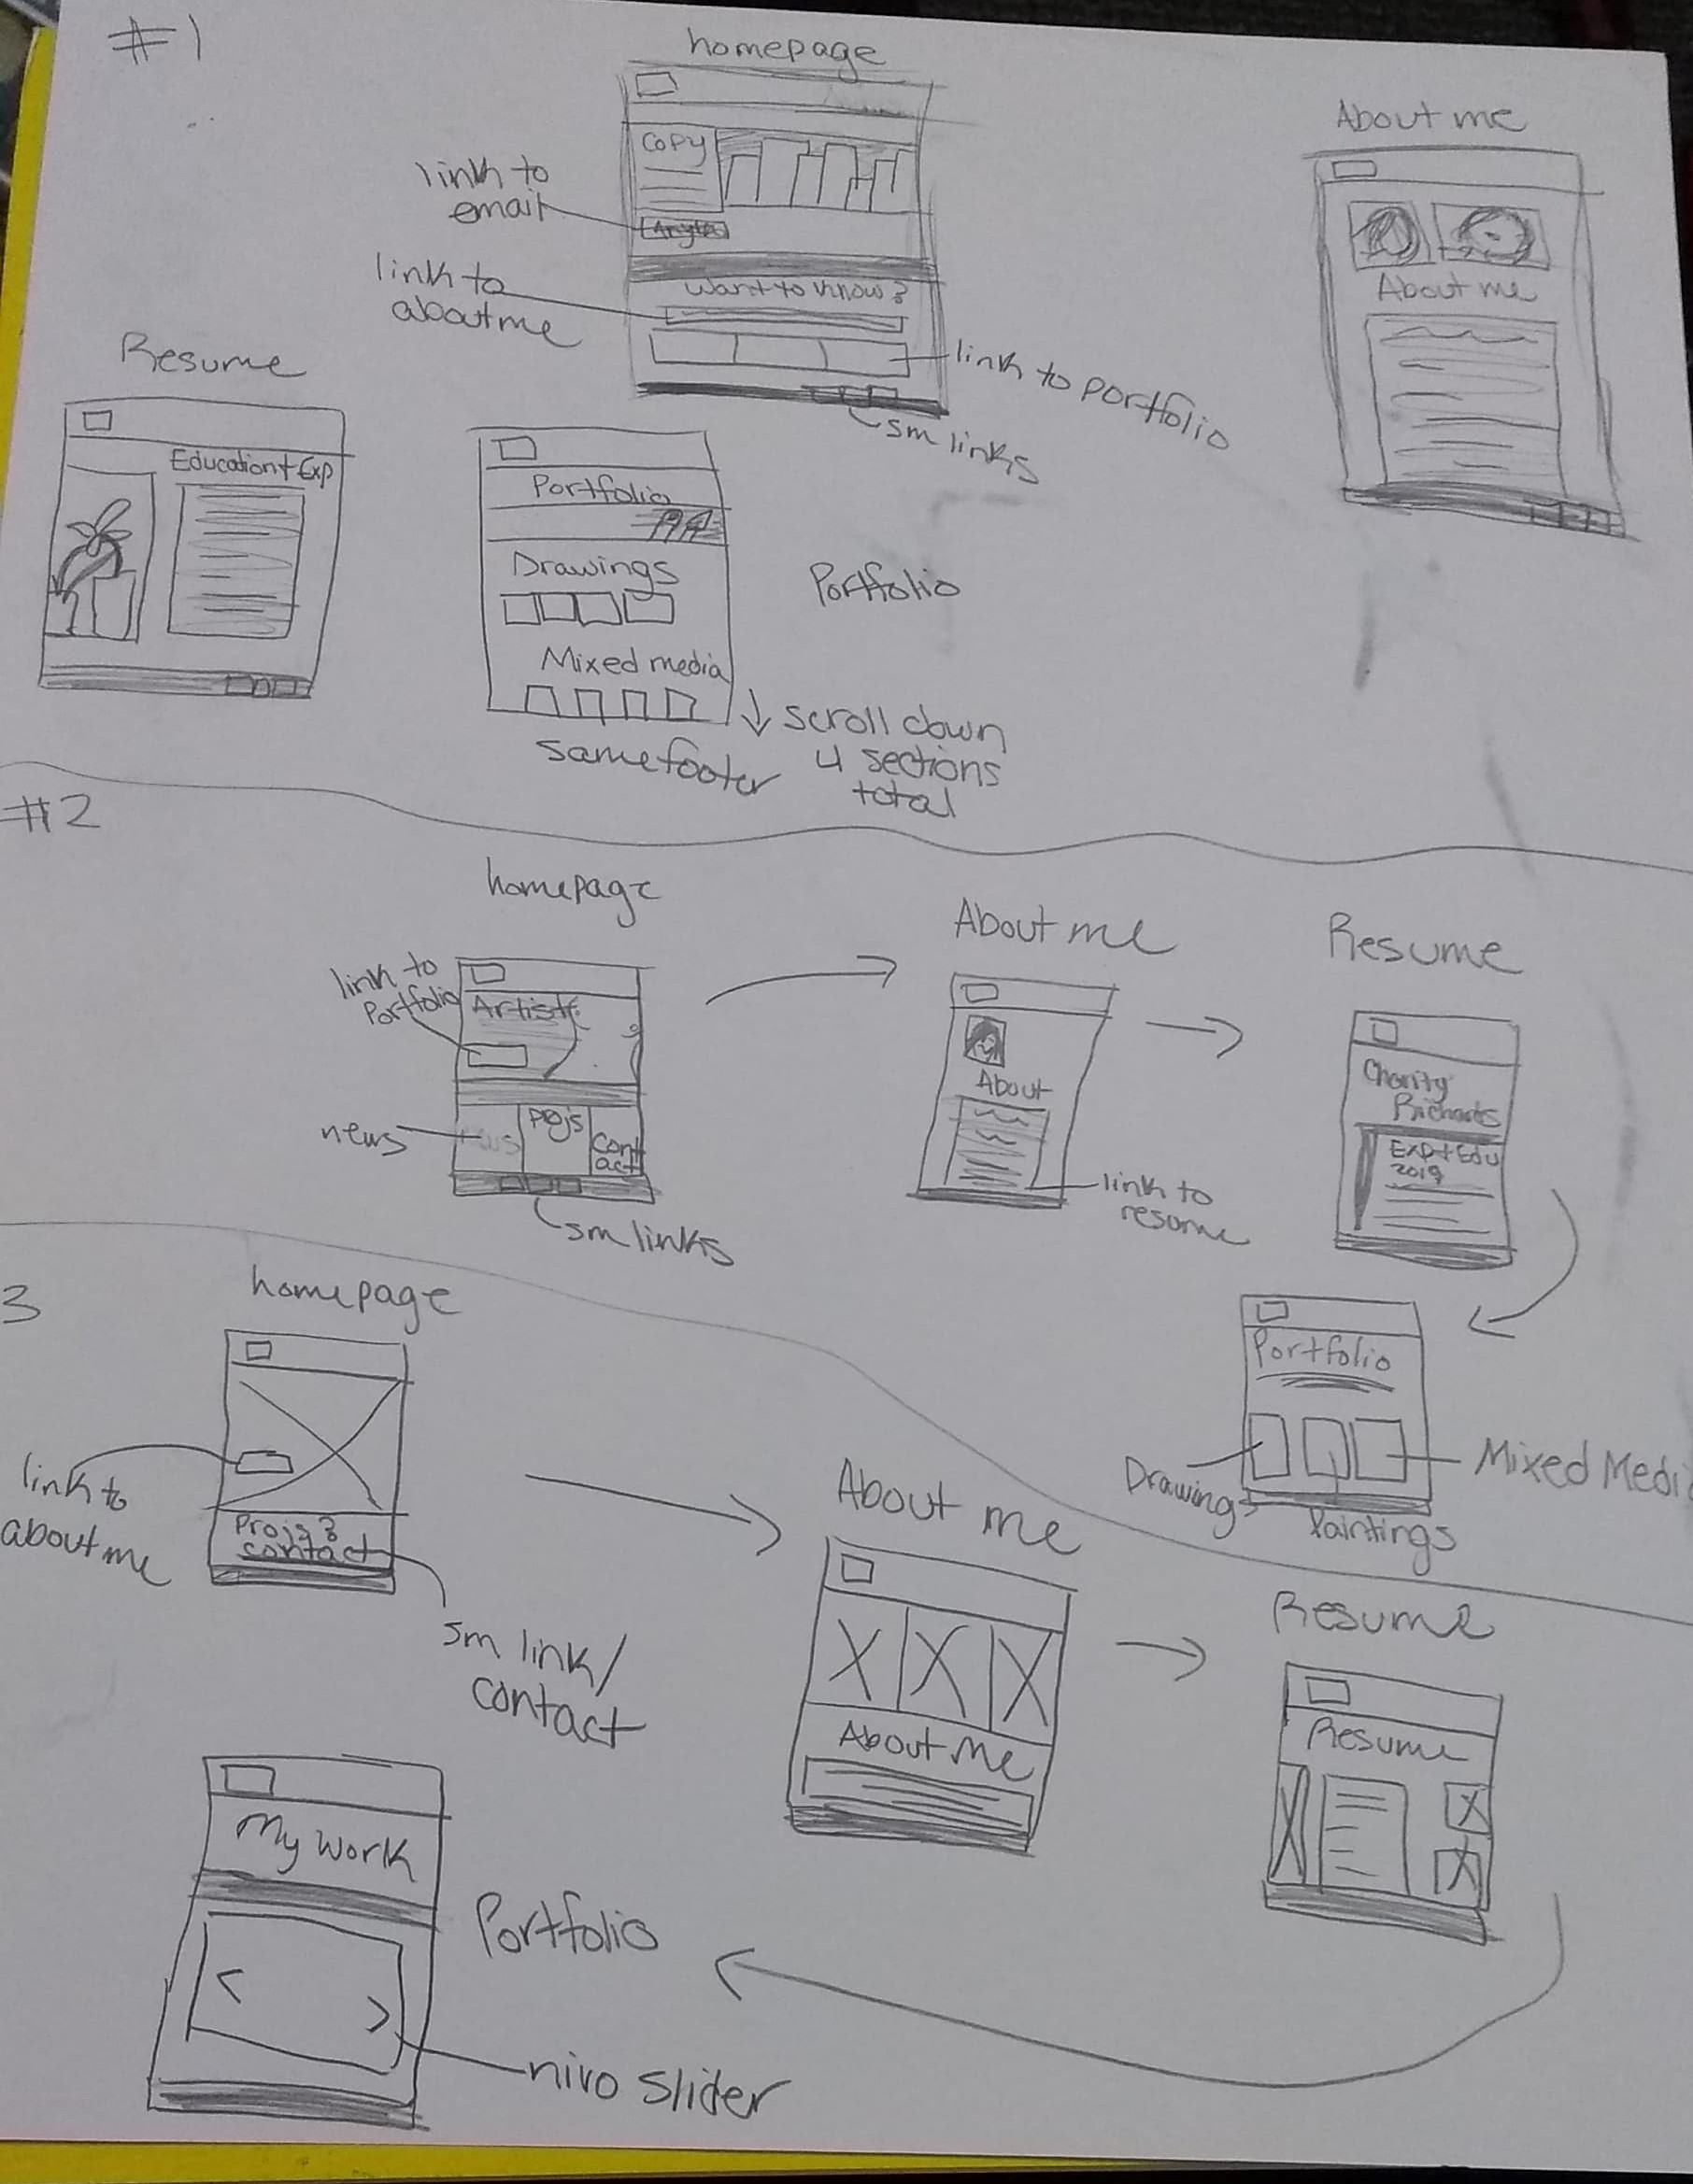 #1
homepage
Copy
link to
email
Want to know?
link to
about me
link to portfolio
sm links
About me
About me
Resume
Education + Exp
Portfolio
Drawings
Mixed media
Portfolio
scroll down
4 sections
total
same footer
#2
homepage
link to
Portfolio
Artist
news
Projs
Cont
act
sm links
About me
About
link to
resume
Resume
Charity
Richards
Exp + Edu
2019
Portfolio
Drawings
Paintings
Mixed Medi
3
homepage
link to
about me
Projs?
contact
sm link/
contact
About me
About Me
Resume
Resume
My Work
Portfolio
nivo slider